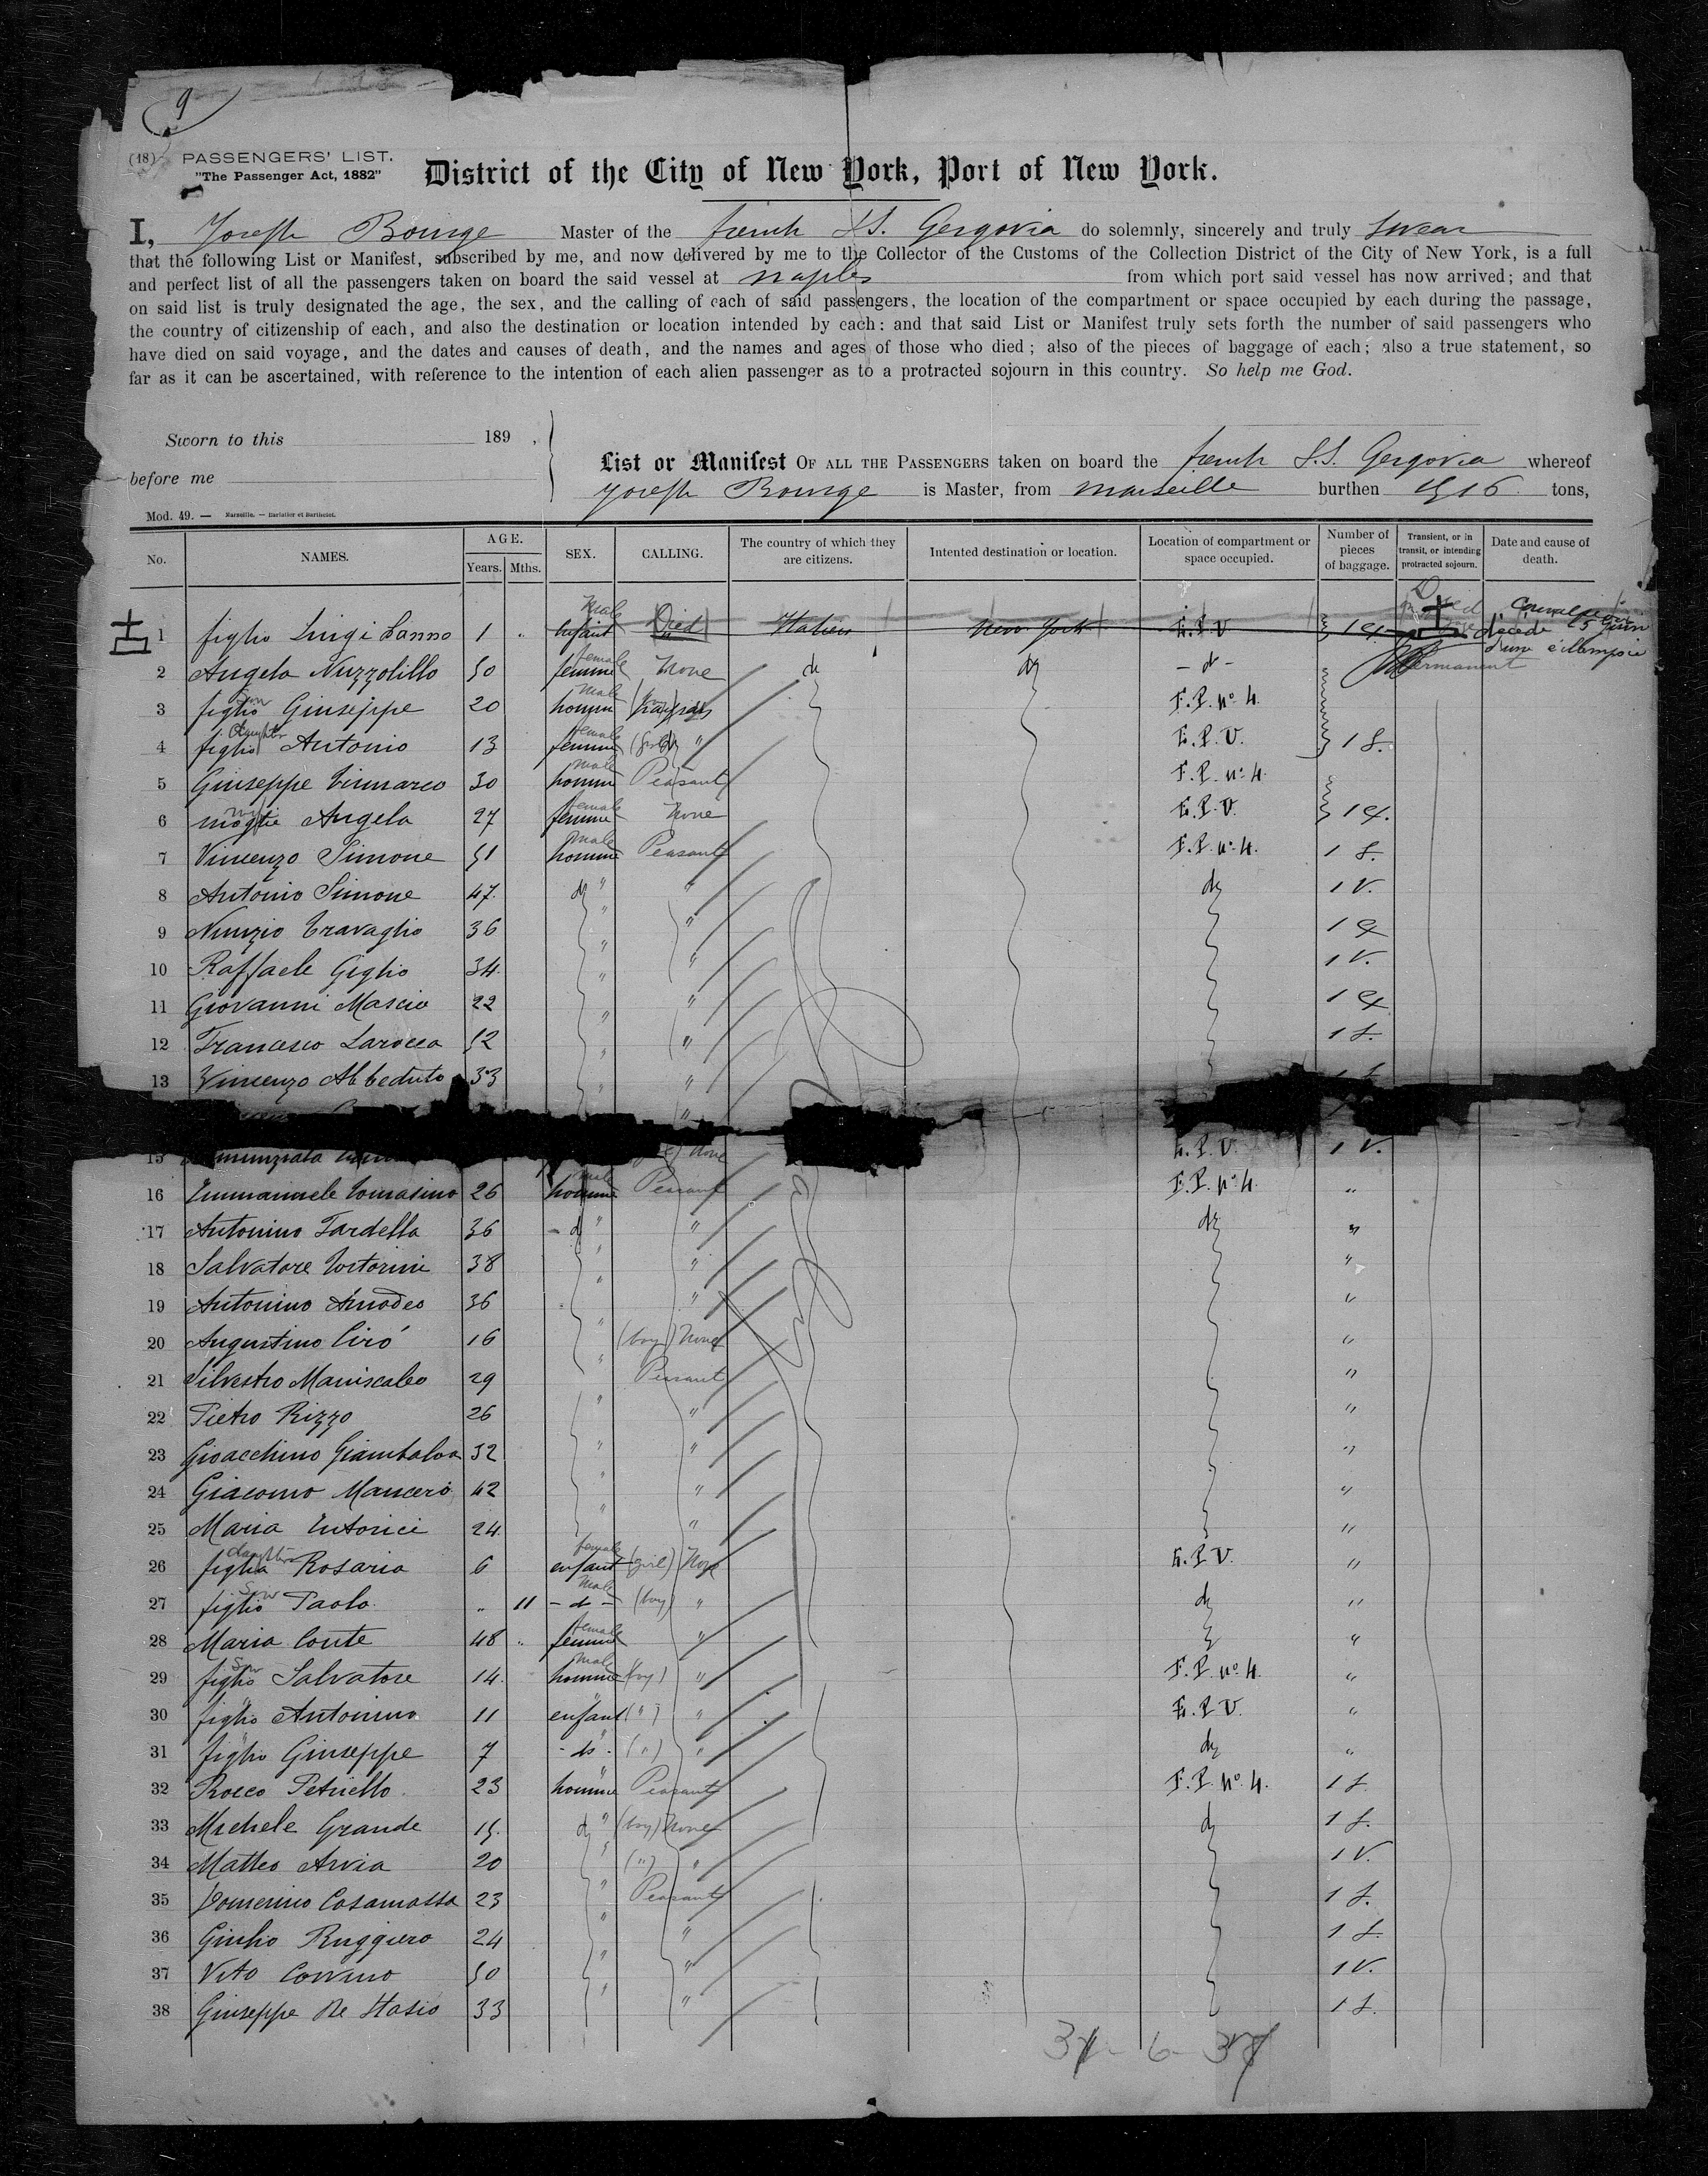 9
(18) PASSENGERS' LIST.
"The Passenger Act, 1882"
District of the City of New York, Port of New York.
I, Joseph Bourge Master of the french S.S. Gergovia do solemnly, sincerely and truly swear
that the following List or Manifest, subscribed by me, and now delivered by me to the Collector of the Customs of the Collection District of the City of New York, is a full
and perfect list of all the passengers taken on board the said vessel at Naples from which port said vessel has now arrived; and that
on said list is truly designated the age, the sex, and the calling of each of said passengers, the location of the compartment or space occupied by each during the passage,
the country of citizenship of each, and also the destination or location intended by each: and that said List or Manifest truly sets forth the number of said passengers who
have died on said voyage, and the dates and causes of death, and the names and ages of those who died; also of the pieces of baggage of each; also a true statement, so
far as it can be ascertained, with reference to the intention of each alien passenger as to a protracted sojourn in this country. So help me God.
Sworn to this 189 ,
before me
List or Manifest OF ALL THE PASSENGERS taken on board the french S.S. Gergovia whereof
Joseph Bourge is Master, from Marseille burthen 1916 tons,
Mod. 49. — Marseille. — Barlatier et Barthelet.
No. NAMES. AGE. Years. Mths. SEX. CALLING. The country of which they are citizens. Intented destination or location. Location of compartment or space occupied. Number of pieces of baggage. Transient, or in transit, or intending protracted sojourn. Date and cause of death.
1 figlio Luigi Sanno 1 " Male Infant Died Italien New York E.P.V 1 décédé 15 Juin
2 Angela Nuzzolillo 50 female femme None d° d° - d° - Permanent
3 son figlio Giuseppe 20 male homme F.P. n° 4.
4 daughter figlia Antonio 13 female femme (girl) " E.P.V. 1 S.
5 Giuseppe Vinnarco 30 male homme Peasant F.P. n° 4.
6 wife moglie Angela 27 female femme None E.P.V.
7 Vincenzo Simone 51 male homme Peasant F.P. n° 4. 1 S.
8 Antonio Simone 47 d° " " d° 1 V.
9 Nunzio Travaglio 36 " "
10 Raffaele Giglio 34 " " 1 V.
11 Giovanni Mascio 22 " "
12 Francesco Larocca 52 " " 1 S.
13 Vincenzo Abbeduto 33 " "
15 None E.P.V. 1 V.
16 Emmanuele Tomasino 26 male homme Peasant F.P. n° 4. "
17 Antonino Tardella 36 - d° " " d° "
18 Salvatore Tortorini 38 " " "
19 Antonino Amodeo 36 " " "
20 Augustino Ciró 16 " (boy) None "
21 Silvestro Maniscalco 29 " Peasant "
22 Pietro Rizzo 26 " " "
23 Gioacchino Giambalva 32 " " "
24 Giacomo Mancero 42 " " "
25 Maria Intorici 24 " " "
26 daughter figlia Rosaria 6 female enfant (girl) None E.P.V. "
27 son figlio Paolo " 11 male - d° - (boy) " d° "
28 Maria Conte 48 " female femme " "
29 son figlio Salvatore 14 male homme (boy) " F.P. n° 4. "
30 " figlio Antonino 11 " enfant (") " E.P.V. "
31 " figlio Giuseppe 7 " - d° - (") " d° "
32 Rocco Petriello 23 " homme Peasant F.P. n° 4. 1 S.
33 Michele Grande 15 d° " (boy) None d° 1 S.
34 Matteo Arvia 20 " (") " 1 V.
35 Domenico Casamassa 23 " Peasant 1 S.
36 Giulio Ruggiero 24 " " 1 S.
37 Vito Corvino 50 " " 1 V.
38 Giuseppe De Stasio 33 " " 1 S.